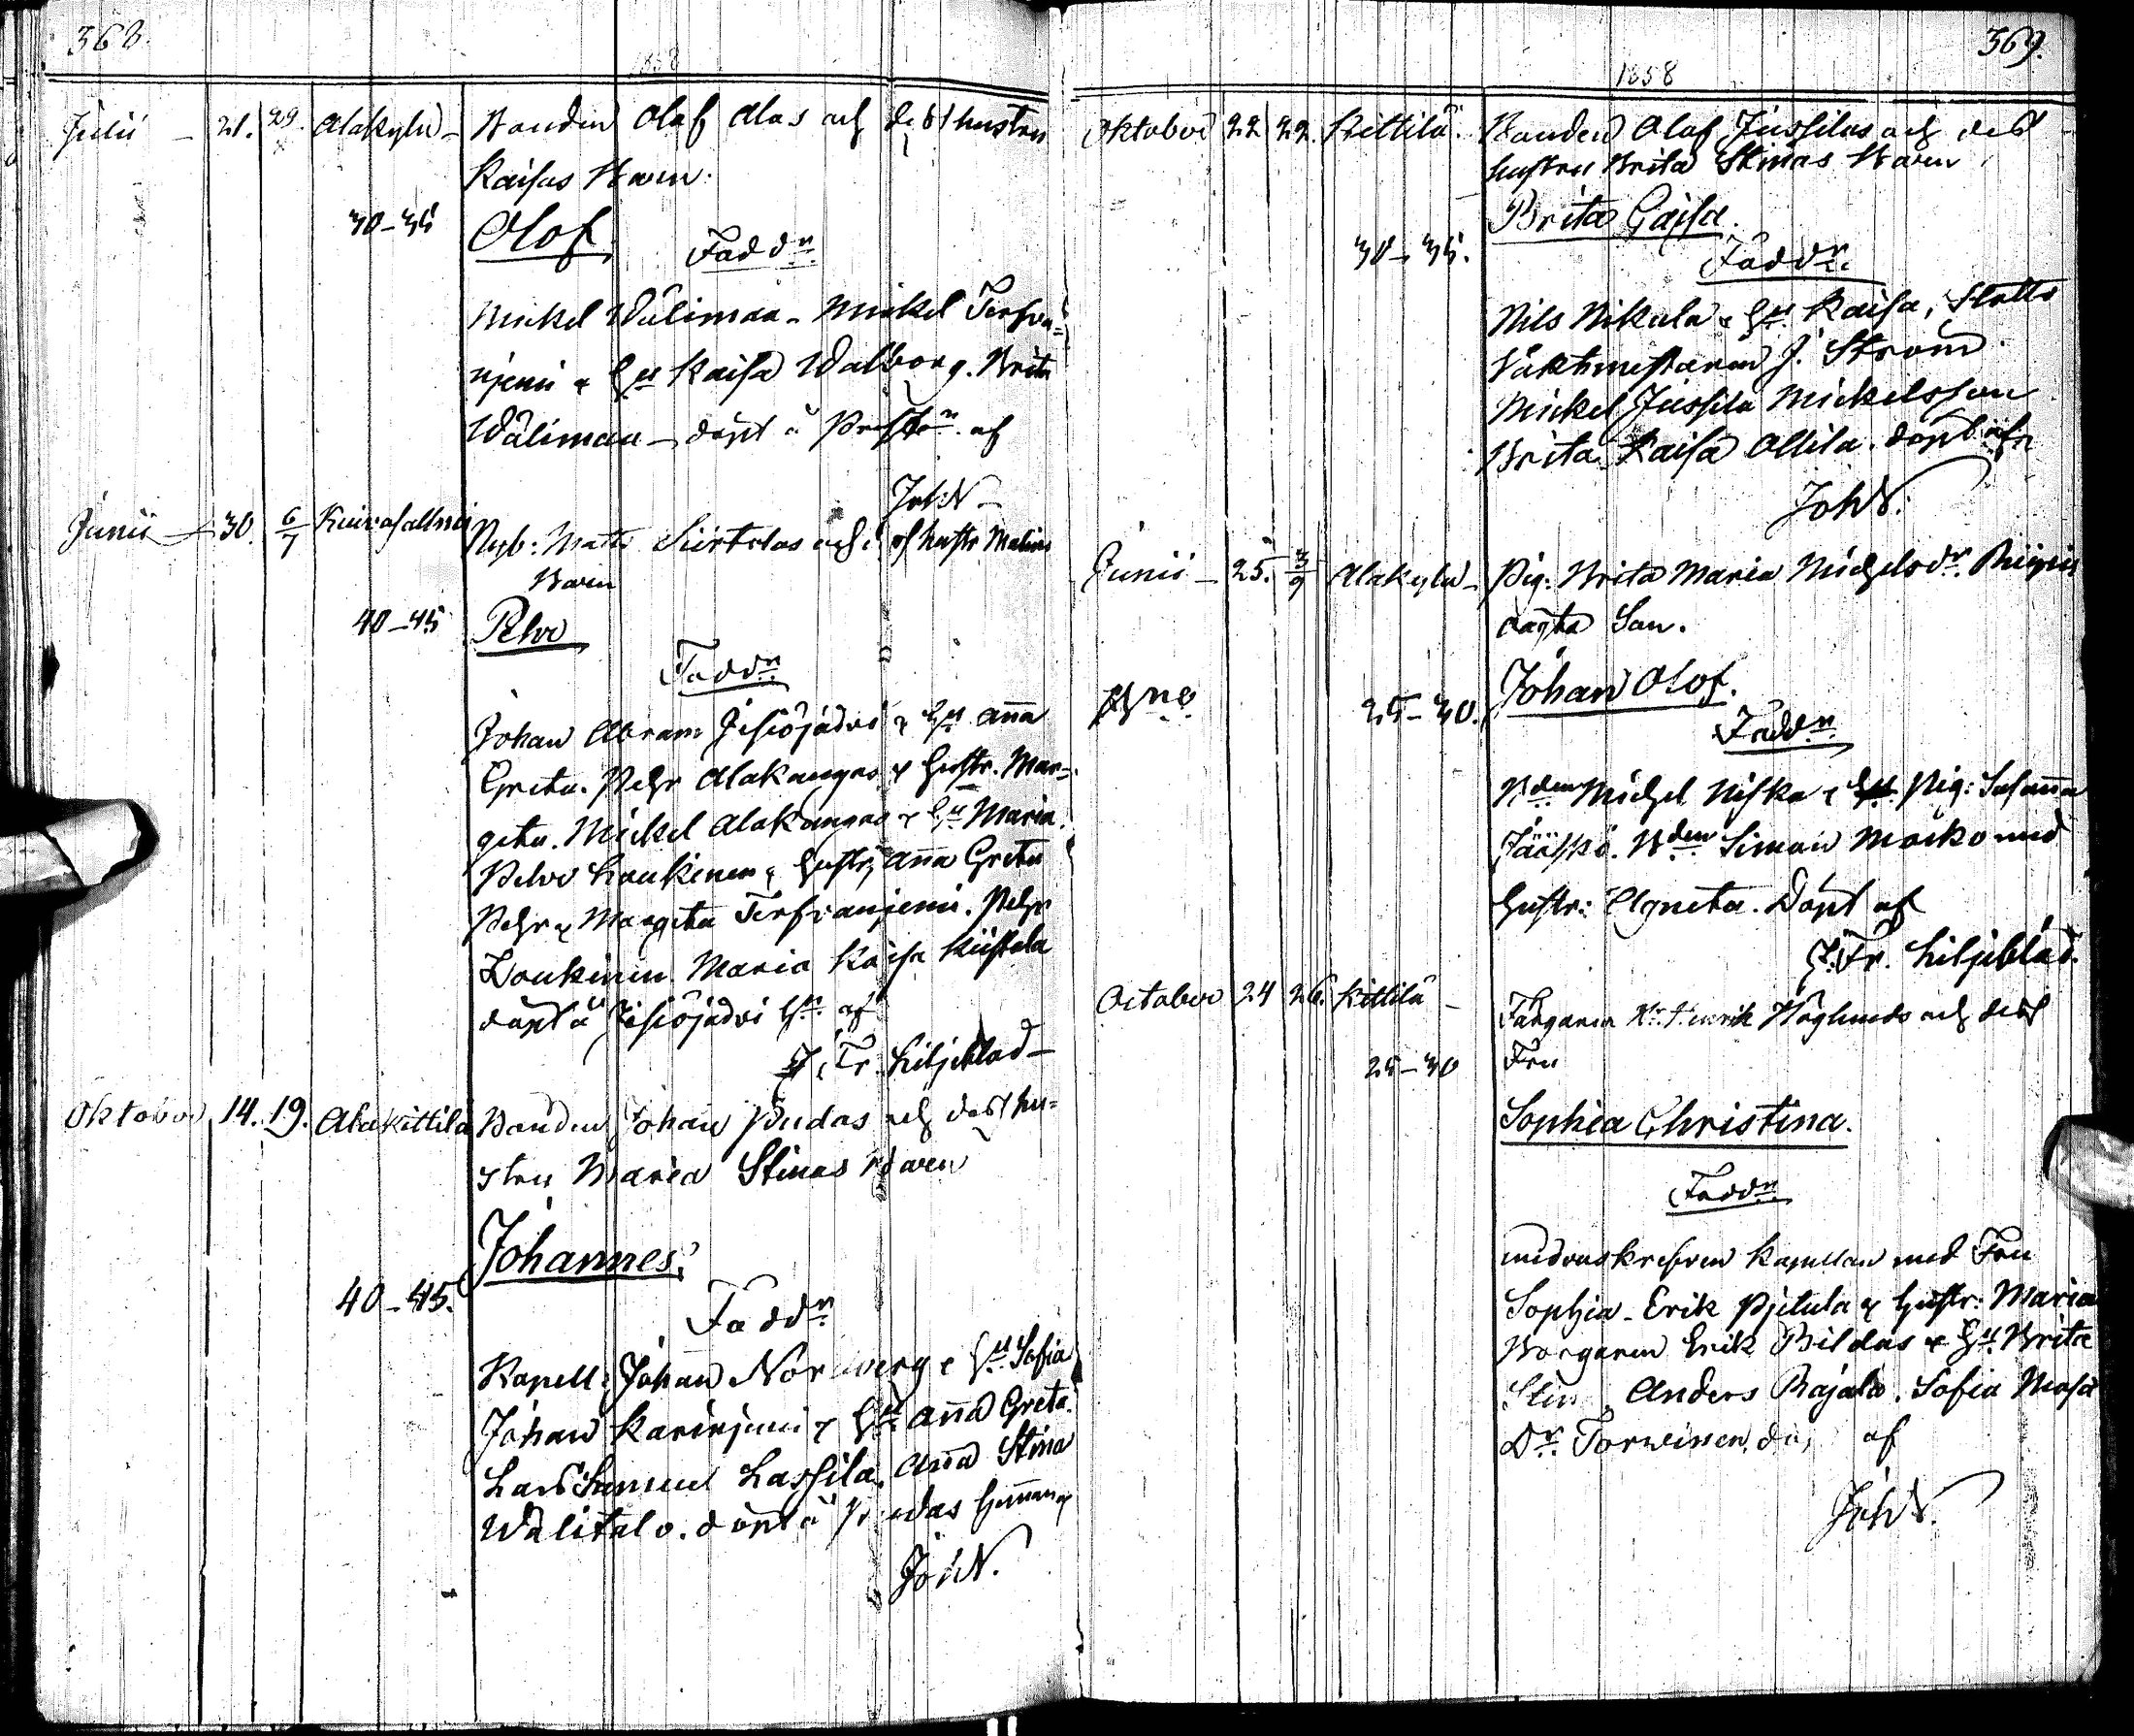 368.
1858
Julii - 21. 29. Alakylä - Bonden Olof Alas och dess hustru
Kaisas Barn.
30-35 Olof
Faddr.
Mickel Wälimaa - Mickel Terfva-
njemi & Hu Kaisa Walborg. Brita
Wälimaa - döpt å af
Joh N -
Junii - 30. 6/7 Nyb: Matts Siirtolas och hustr Malins
Barn
40-45 Pehr
Faddr.
Johan Abram Jesiöjärvi & Hu Anna
Greta. Pehr Alakangas & Hustr. Mar-
geta. Mickel Alakangas & Hu Maria.
Petter Loukinen & Hustr, Anna Greta
Pehr & Margeta Terfvaniemi. Pehr
Loukinen. Maria Kaisa Kiistala
döpt å Jesiöjärvi af
J. Fr. Liljeblad -
Oktober 14. 19. Alakittilä Bonden Johan Pudas och dess hu-
stru Maria Stinas Barn
Johannes.
40-45. Faddr
Kapell: Johan Nordberg & Hu Sofia
Johan Kariniemi & Hu Anna Greta.
Lars Lassila. Anna Stina
Wälitalo. döpt å Pudas hemman af
Joh N.
369.
1858
Oktober 22 22. Kittilä. Bonden Olof Jussilas och dess
hustru Brita Stinas Barn
Brita Cajsa.
30-35. Faddr.
Nils Nikula & Hu Kaisa, Slotts
Vaktmestaren J. Ström.
Mickel Jussila Mickelsson
Brita Kaisa Ollila. döpt af
Joh N.
Junii - 25. 3/9 Alakylä - Pig: Brita Maria Michelsdr.
oägta Son.
25-30. Johan Olof.
Faddr.
Bden Michel Niska & Pig: Susanna
Jääskö. Bden Simon Moiko med
Hustr: Agneta. Döpt af
J. Fr. Liljeblad.
October 24 26. Kittilä - Färgaren Hr. Henrik Höglunds och dess
25-30 Fru
Sophia Christina.
Faddr
undertskrefven Kapellan med Fru
Sophia - Erik Pjetula & Hustr: Maria
Borgaren Erik Pildas & Hu Brita
Stin. Anders Rajala. Sofia
Dr. Torwinen, af
Joh N.